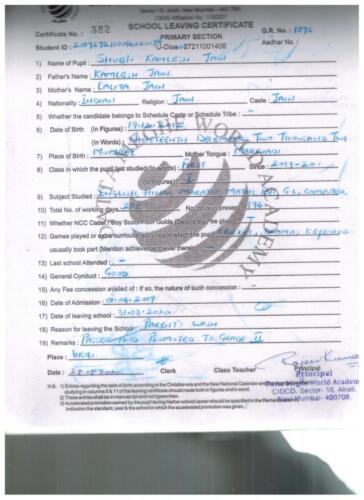 SCHOOL LEAVING CERTIFICATE
Certificate No. : 382 PRIMARY SECTION G.R. No.: 1896
Student ID : U-Dise : 27211001406 Aadhar No.:
1) Name of Pupil : SHUBH KAMLESH JAIN
2) Father's Name KAMLESH JAIN
3) Mother's Name LALITA JAIN
4) Nationality : INDIAN Religion : JAIN Caste : JAIN
5) Whether the candidate belongs to Schedule Caste or Schedule Tribe :
6) Date of Birth (In Figures) : 19.12.2012
(In Words) : NINETEENTH DECEMBER TWO THOUSAND
7) Place of Birth : MUMBAI Mother Tongue : MARWADI
8) Class in which the pupil last studied (In words) : FIRST Since : 2019-20
(In Figures) : I
9) Subject Studied : ENGLISH HINDI MARATHI MATHS G.K, COMPUTER
10) Total No. of working days No. of days present 194
11) Whether NCC Cadet / Boy Scout / Girl Guide (Details may be given)
12) Games played or extra curricular activities in which the pupil
usually took part (Mention achievement level therein) : -
13) Last school Attended : -
14) General Conduct : GOOD
15) Any Fee concession availed of : If so, the nature of such concession : -
16) Date of Admission : 2019
17) Date of leaving school : 31.03.2020
18) Reason for leaving the School : PARENT'S WISH
19) Remarks : PASSED AND PROMOTED TO GRADE II
Place :
Date : 2020 Clerk Class Teacher Principal
Principal
World Academy
CIDCO, Sector- 16, Airoli,
Navi Mumbai- 400708.
N.B. 1) Entries regarding the date of birth according to the Christian era and the New National Calendar and
studying in columns 5 & 11 of the leaving certificate should be made both in figures and in word.
2) These entries shall be in manuscript and not typewritten.
3) Accelerated promotion earned by the pupil during his/her school career should be specified in the Remarks
Indication the standard, year & the school in which the accelerated promotion was given.
WORLD ACADEMY